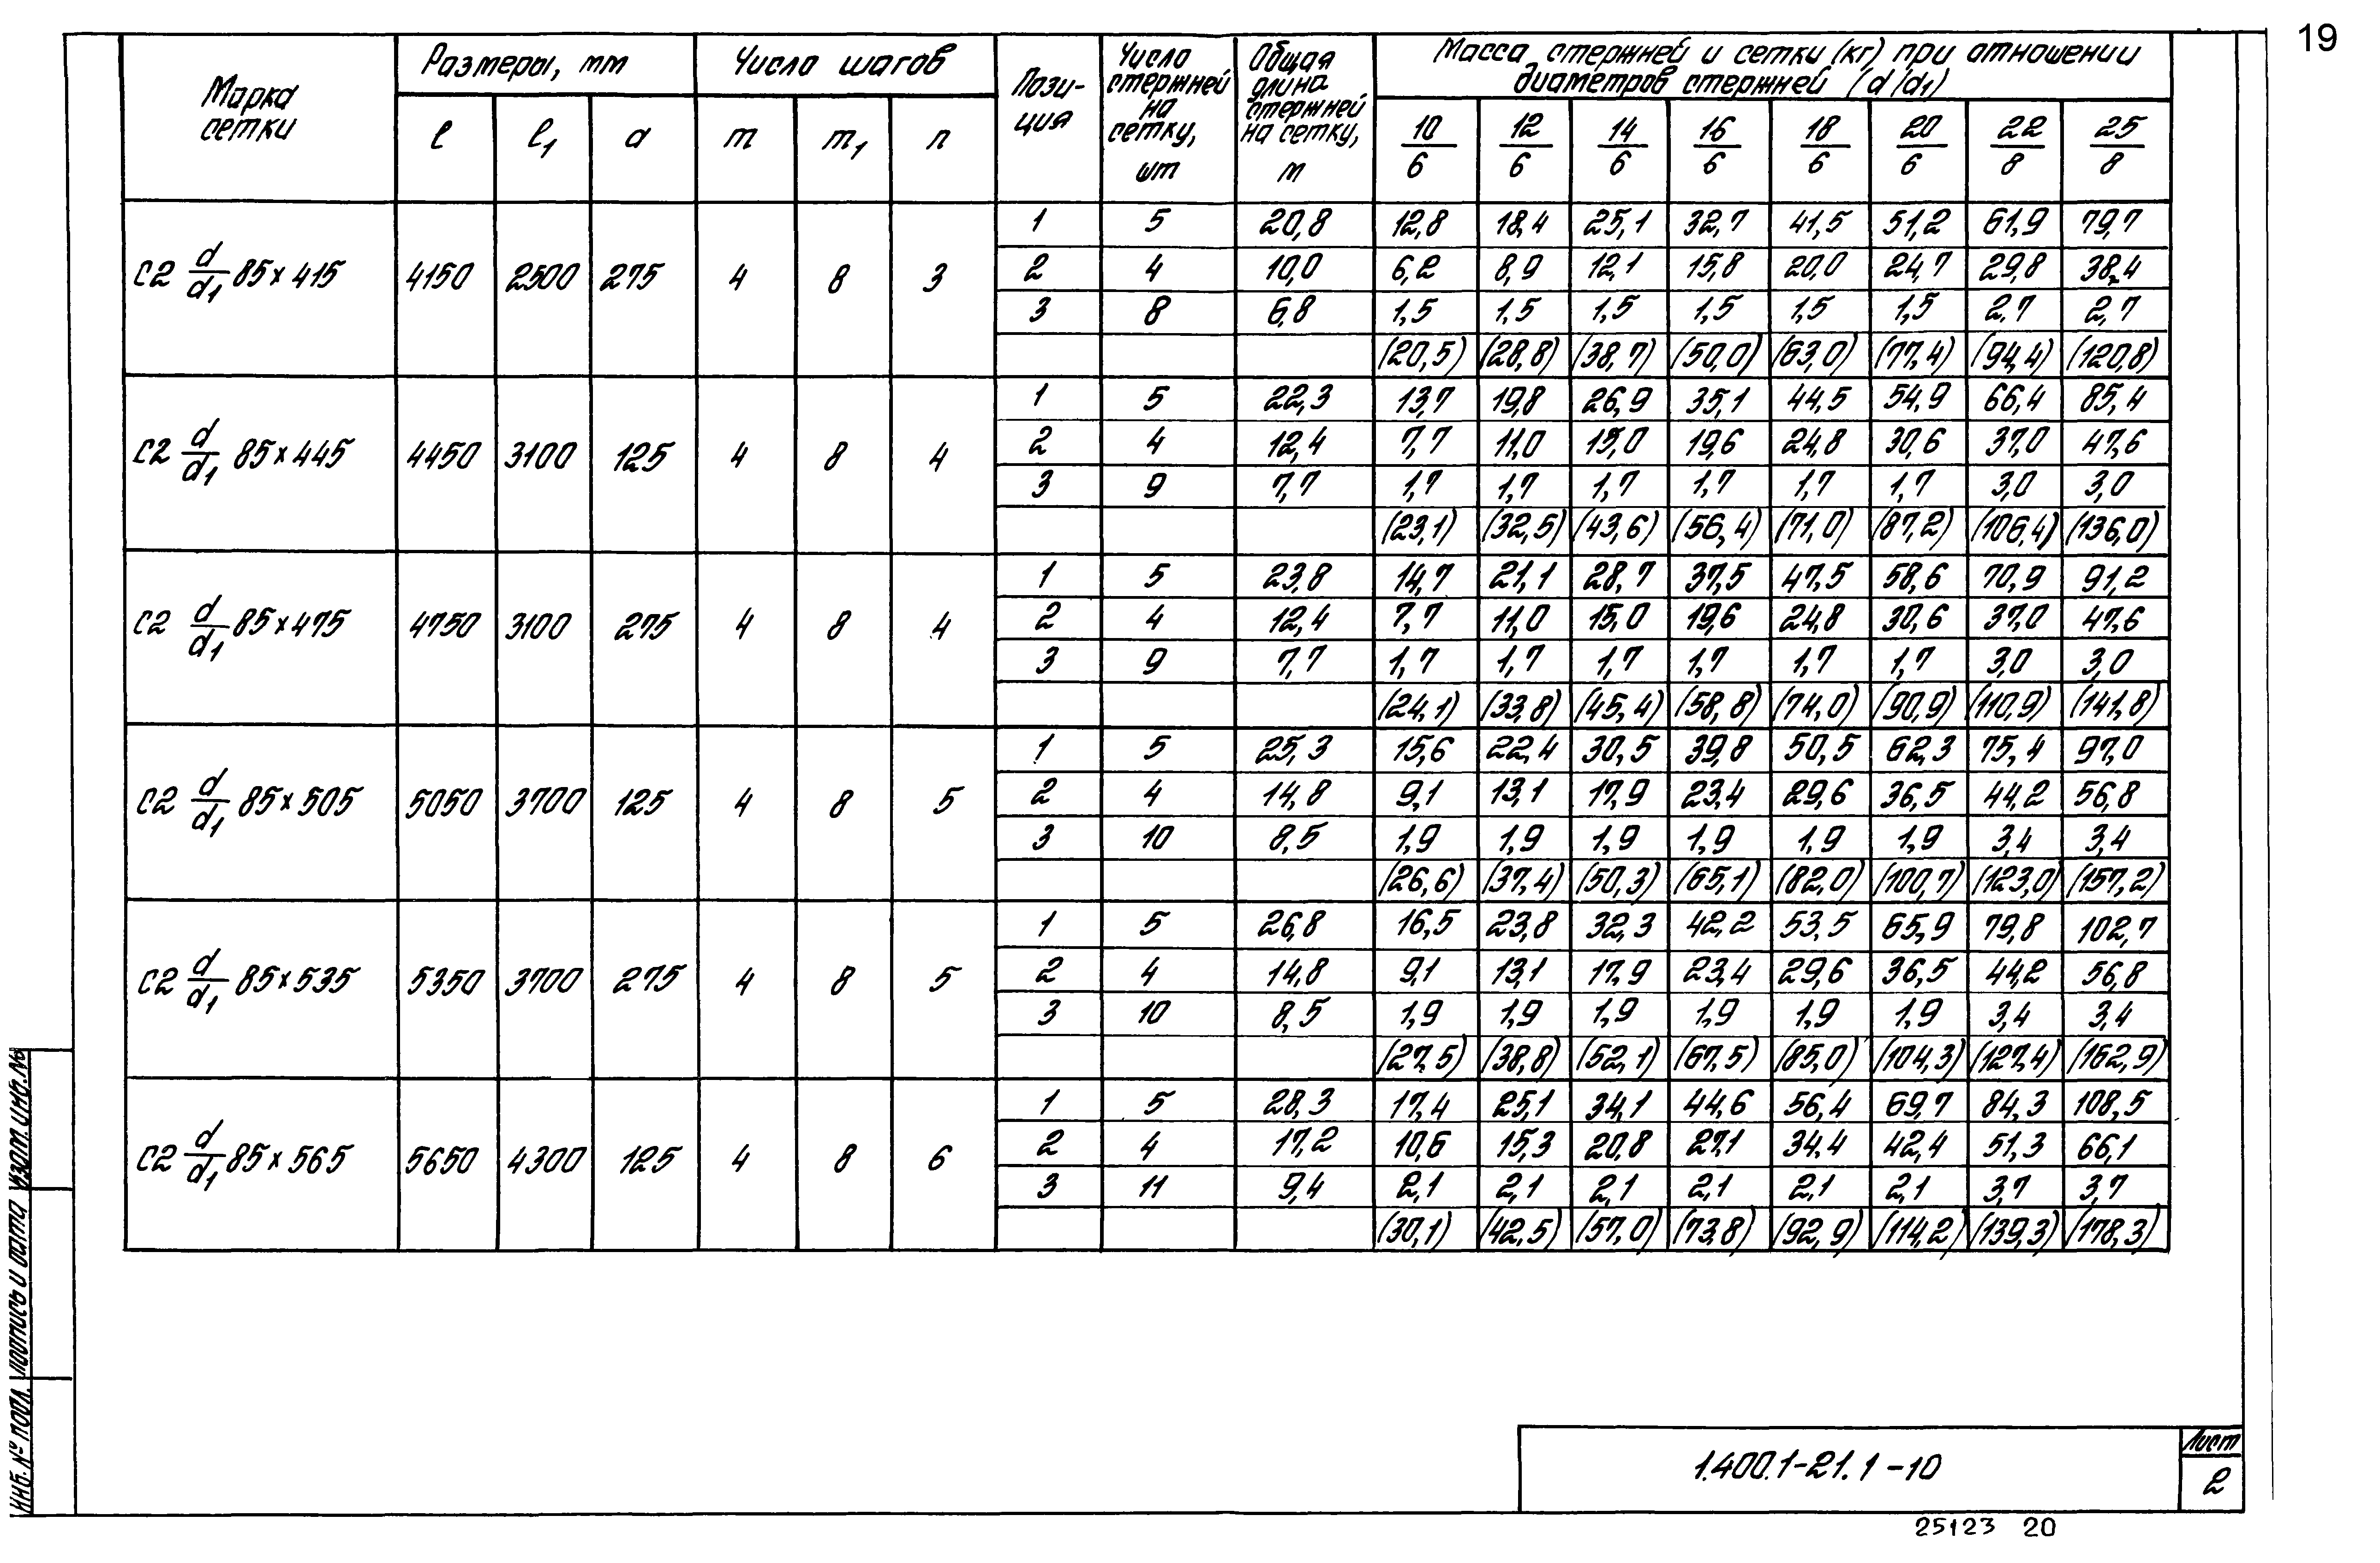 19
Марка сетки | Размеры, мм | Число шагов | Пози-ция | Число стержней на сетку, шт | Общая длина стержней на сетку, м | Масса стержней и сетки (кг) при отношении диаметров стержней (d/d1)
l | l1 | a | m | m1 | n | 10/6 | 12/6 | 14/6 | 16/6 | 18/6 | 20/6 | 22/8 | 25/8
С2 d/d1 85×415 | 4150 | 2500 | 275 | 4 | 8 | 3
1 | 5 | 20,8 | 12,8 | 18,4 | 25,1 | 32,7 | 41,5 | 51,2 | 61,9 | 79,7
2 | 4 | 10,0 | 6,2 | 8,9 | 12,1 | 15,8 | 20,0 | 24,7 | 29,8 | 38,4
3 | 8 | 6,8 | 1,5 | 1,5 | 1,5 | 1,5 | 1,5 | 1,5 | 2,7 | 2,7
(20,5) | (28,8) | (38,7) | (50,0) | (63,0) | (77,4) | (94,4) | (120,8)
С2 d/d1 85×445 | 4450 | 3100 | 125 | 4 | 8 | 4
1 | 5 | 22,3 | 13,7 | 19,8 | 26,9 | 35,1 | 44,5 | 54,9 | 66,4 | 85,4
2 | 4 | 12,4 | 7,7 | 11,0 | 15,0 | 19,6 | 24,8 | 30,6 | 37,0 | 47,6
3 | 9 | 7,7 | 1,7 | 1,7 | 1,7 | 1,7 | 1,7 | 1,7 | 3,0 | 3,0
(23,1) | (32,5) | (43,6) | (56,4) | (71,0) | (87,2) | (106,4) | (136,0)
С2 d/d1 85×475 | 4750 | 3100 | 275 | 4 | 8 | 4
1 | 5 | 23,8 | 14,7 | 21,1 | 28,7 | 37,5 | 47,5 | 58,6 | 70,9 | 91,2
2 | 4 | 12,4 | 7,7 | 11,0 | 15,0 | 19,6 | 24,8 | 30,6 | 37,0 | 47,6
3 | 9 | 7,7 | 1,7 | 1,7 | 1,7 | 1,7 | 1,7 | 1,7 | 3,0 | 3,0
(24,1) | (33,8) | (45,4) | (58,8) | (74,0) | (90,9) | (110,9) | (141,8)
С2 d/d1 85×505 | 5050 | 3700 | 125 | 4 | 8 | 5
1 | 5 | 25,3 | 15,6 | 22,4 | 30,5 | 39,8 | 50,5 | 62,3 | 75,4 | 97,0
2 | 4 | 14,8 | 9,1 | 13,1 | 17,9 | 23,4 | 29,6 | 36,5 | 44,2 | 56,8
3 | 10 | 8,5 | 1,9 | 1,9 | 1,9 | 1,9 | 1,9 | 1,9 | 3,4 | 3,4
(26,6) | (37,4) | (50,3) | (65,1) | (82,0) | (100,7) | (123,0) | (157,2)
С2 d/d1 85×535 | 5350 | 3700 | 275 | 4 | 8 | 5
1 | 5 | 26,8 | 16,5 | 23,8 | 32,3 | 42,2 | 53,5 | 65,9 | 79,8 | 102,7
2 | 4 | 14,8 | 9,1 | 13,1 | 17,9 | 23,4 | 29,6 | 36,5 | 44,2 | 56,8
3 | 10 | 8,5 | 1,9 | 1,9 | 1,9 | 1,9 | 1,9 | 1,9 | 3,4 | 3,4
(27,5) | (38,8) | (52,1) | (67,5) | (85,0) | (104,3) | (127,4) | (162,9)
С2 d/d1 85×565 | 5650 | 4300 | 125 | 4 | 8 | 6
1 | 5 | 28,3 | 17,4 | 25,1 | 34,1 | 44,6 | 56,4 | 69,7 | 84,3 | 108,5
2 | 4 | 17,2 | 10,6 | 15,3 | 20,8 | 27,1 | 34,4 | 42,4 | 51,3 | 66,1
3 | 11 | 9,4 | 2,1 | 2,1 | 2,1 | 2,1 | 2,1 | 2,1 | 3,7 | 3,7
(30,1) | (42,5) | (57,0) | (73,8) | (92,9) | (114,2) | (139,3) | (178,3)
Инв. № подл. Подпись и дата Взам. инв. №
1.400.1-21.1-10
Лист
2
25123 20